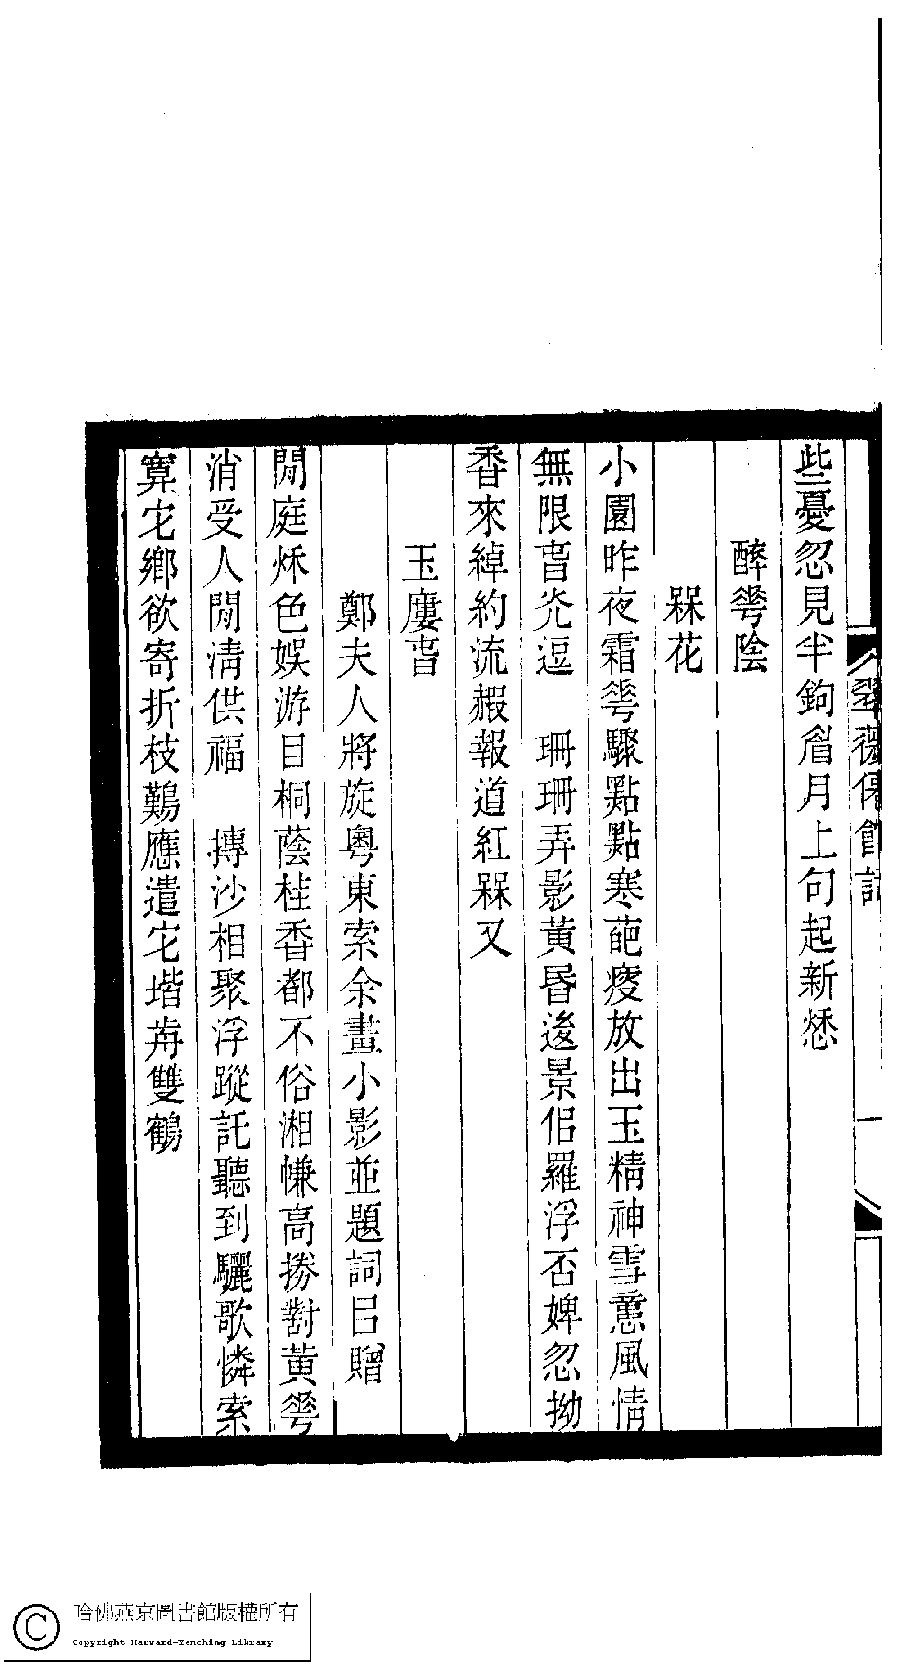 些憂忽見半鉤眉月上句起新愁
醉蕚陰
槑花
小園昨夜霜蕚驟點點寒葩瘦放出玉精神雪意風情
無限旾光逗　珊珊弄影黃昏後景侶羅浮否婢忽拗
香來綽約流霞報道紅槑又
玉廔旾
鄭夫人將旋粵東索余畫小影並題詞㠯贈
閒庭秌色娛游目桐蔭桂香都不俗湘㡘高捲對黃蕚
消受人閒淸供福　摶沙相聚浮蹤託聽到驪歌憐索
寞它鄉欲寄折枝難應遣它堦前雙鶴
翠薇僊館詞
哈佛燕京圖書館版權所有
Copyright Harvard-Yenching Library